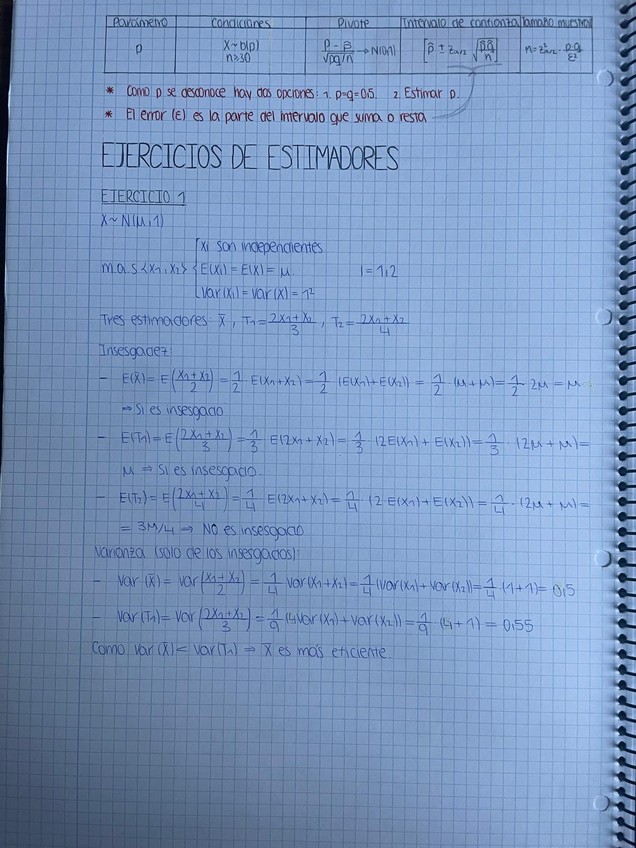 Parámetro | Condiciones | Pivote | Intervalo de confianza | Tamaño muestral
p | X~b(p) n≥30 | p̂ - p / √pq/n → N(0,1) | [p̂ ± zα/2 √p̂q̂/n] | n = z²α/2 · pq/ε²
* Como p se desconoce hay dos opciones: 1. p=q=0,5. 2. Estimar p.
* El error (ε) es la parte del intervalo que suma o resta
EJERCICIOS DE ESTIMADORES
EJERCICIO 1
X ~ N(μ,1)
xi son independientes
m.a.s {x1, x2} { E(xi) = E(X) = μ i = 1,2
Var(xi) = Var(X) = 1²
Tres estimadores: x̄, T1 = 2x1+x2/3, T2 = 2x1+x2/4
Insesgadez:
- E(x̄) = E(x1+x2/2) = 1/2 E(x1+x2) = 1/2 (E(x1)+E(x2)) = 1/2 · (μ+μ) = 1/2 · 2μ = μ
⇒ Si es insesgado
- E(T1) = E(2x1+x2/3) = 1/3 · E(2x1+x2) = 1/3 · (2E(x1) + E(x2)) = 1/3 · (2μ+μ) =
μ ⇒ Si es insesgado
- E(T2) = E(2x1+x2/4) = 1/4 · E(2x1+x2) = 1/4 · (2 E(x1) + E(x2)) = 1/4 · (2μ+μ) =
= 3μ/4 → NO es insesgado
Varianza (solo de los insesgados):
- Var(x̄) = Var(x1+x2/2) = 1/4 Var(x1+x2) = 1/4 (Var(x1)+Var(x2)) = 1/4 (1+1) = 0,5
- Var(T1) = Var(2x1+x2/3) = 1/9 (4Var(x1)+Var(x2)) = 1/9 (4+1) = 0,55
Como Var(x̄) < Var(T1) ⇒ x̄ es más eficiente.